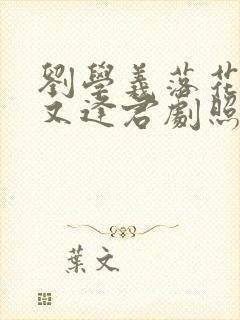 劉學義落花
又逢君劇照
葉文